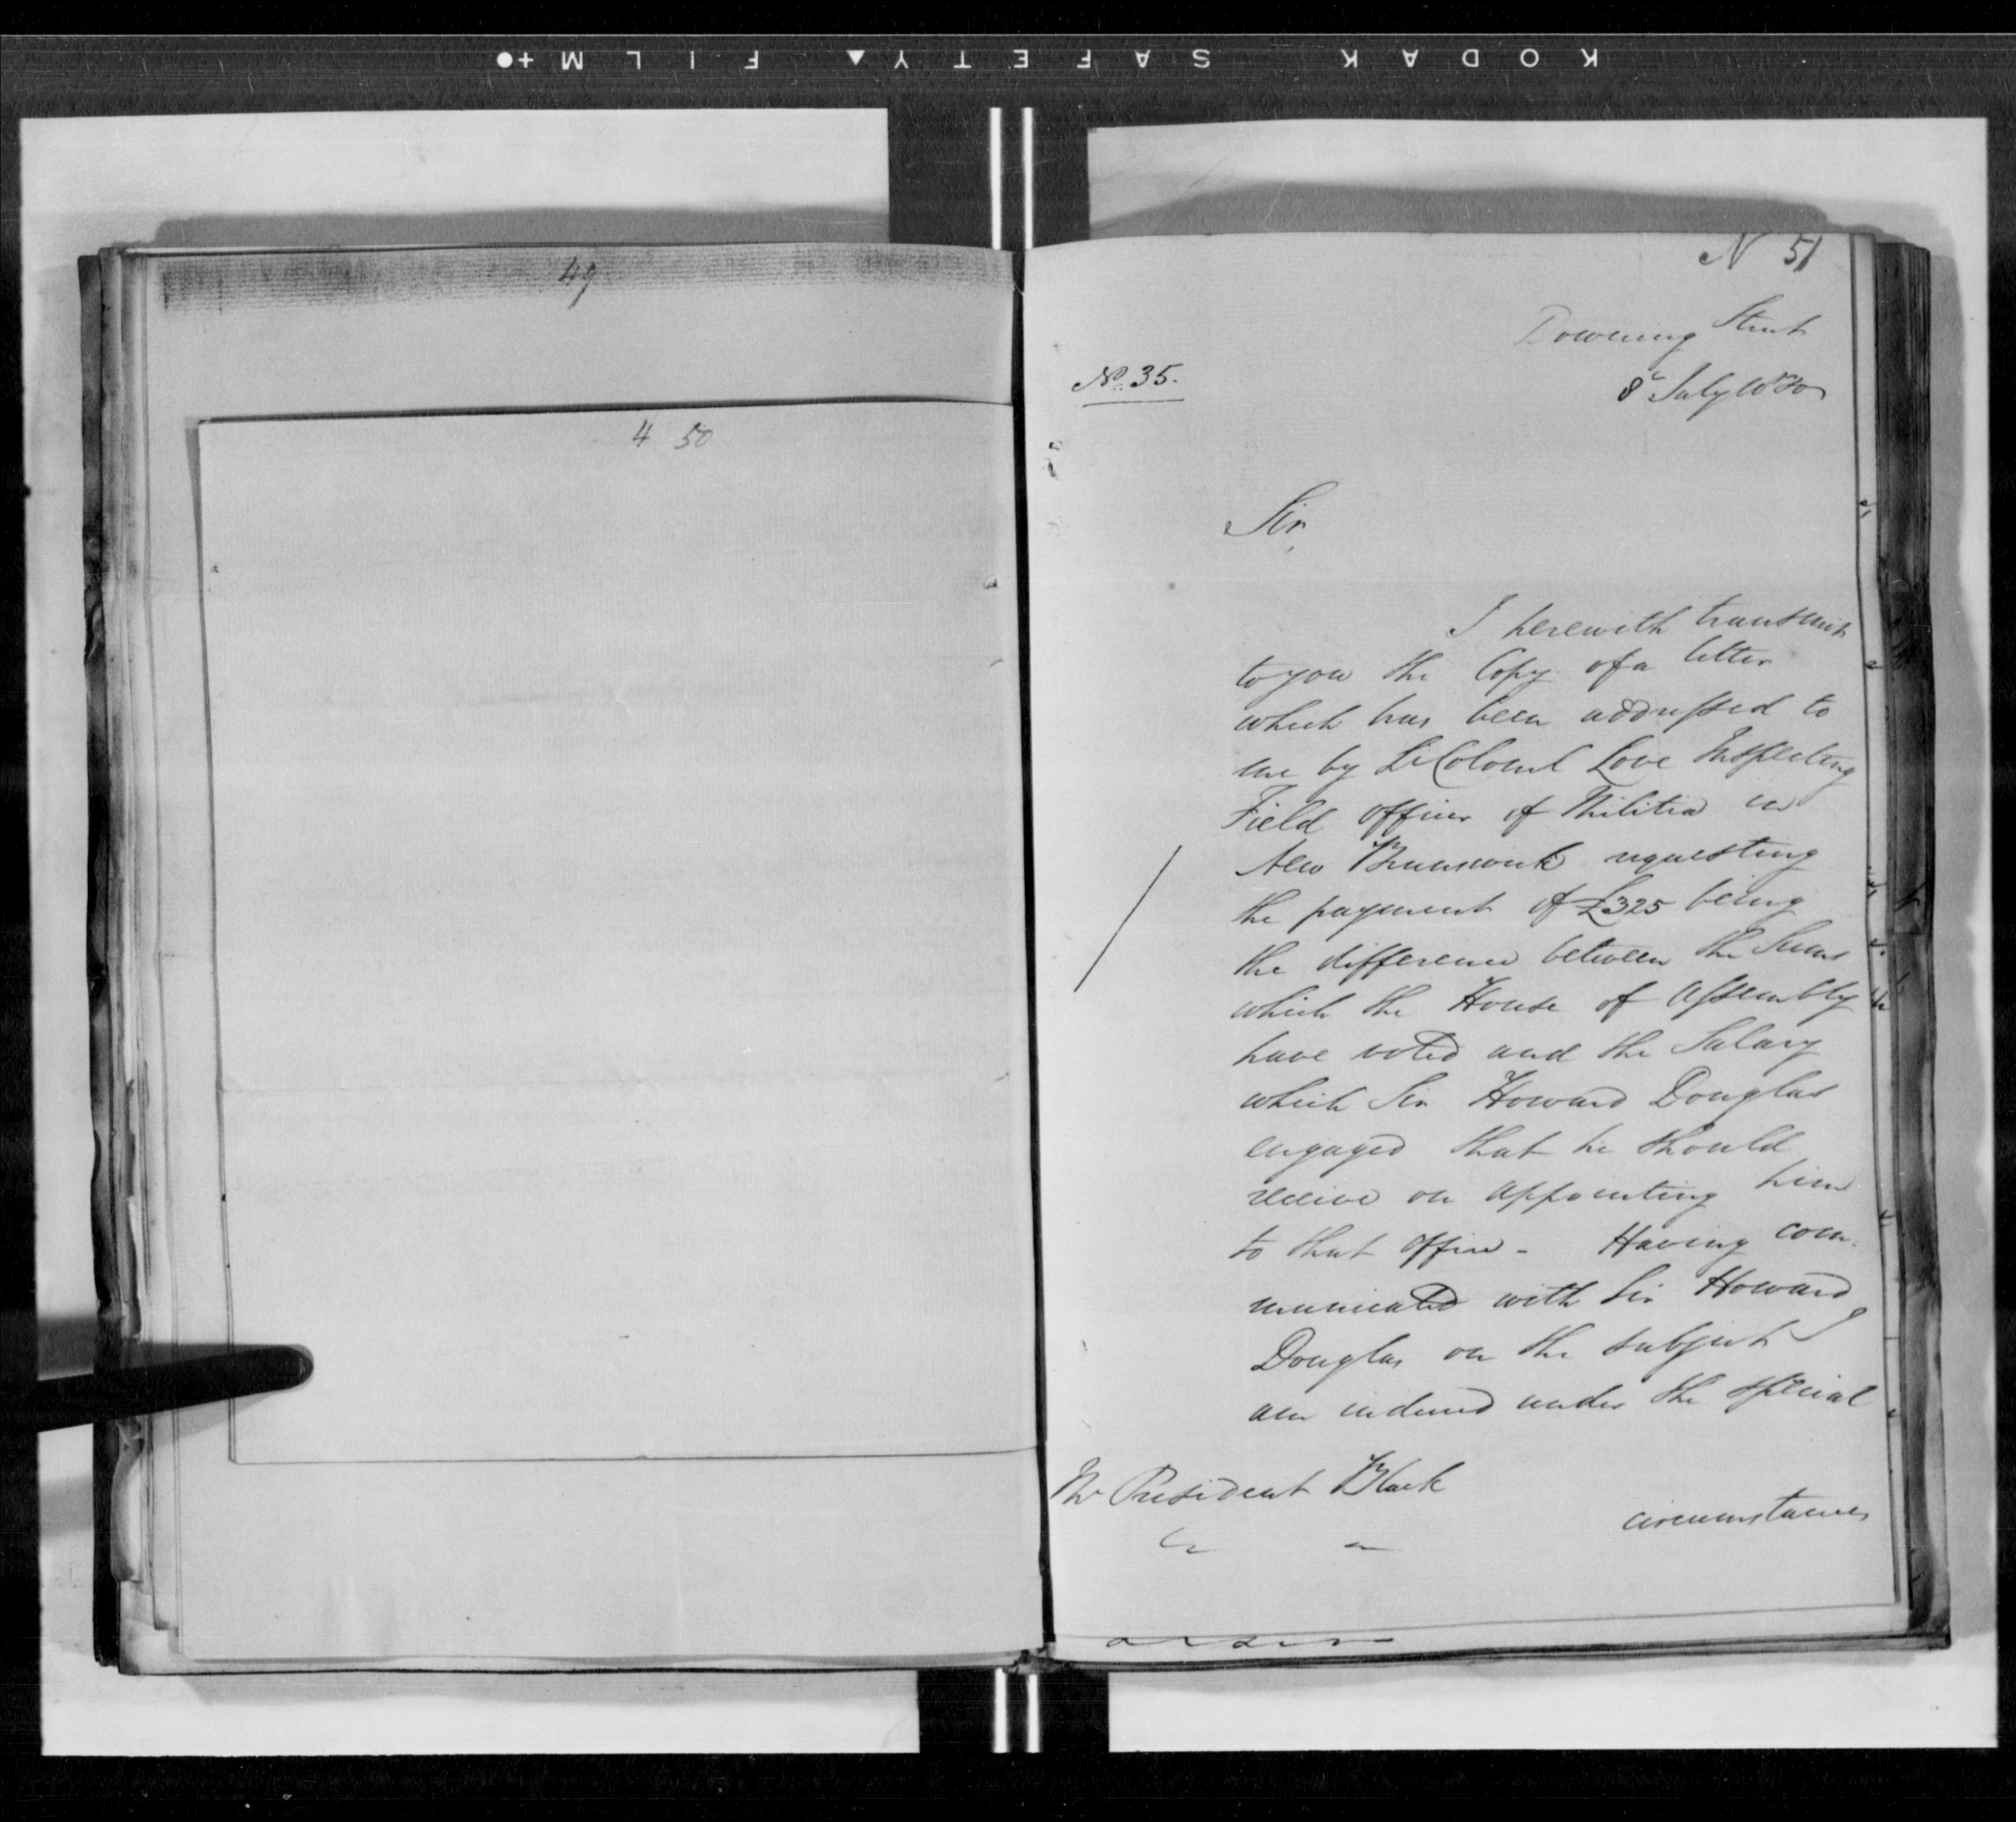 KODAK SAFETY FILM
49
4 50
N 51
Downing Street
8th July 1830
No. 35.
Sir,
I herewith transmit
to you the Copy of a letter
which has been addressed to
me by Lt Colonel Love Inspecting
Field Officer of Militia in
New Brunswick requesting
the payment of £325 being
the difference between the Sums
which the House of Assembly
have voted and the Salary
which Sir Howard Douglas
engaged that he should
receive on appointing him
to that office - Having com-
municated with Sir Howard
Douglas on the subject I
am induced under the special
Mr President Black
circumstances